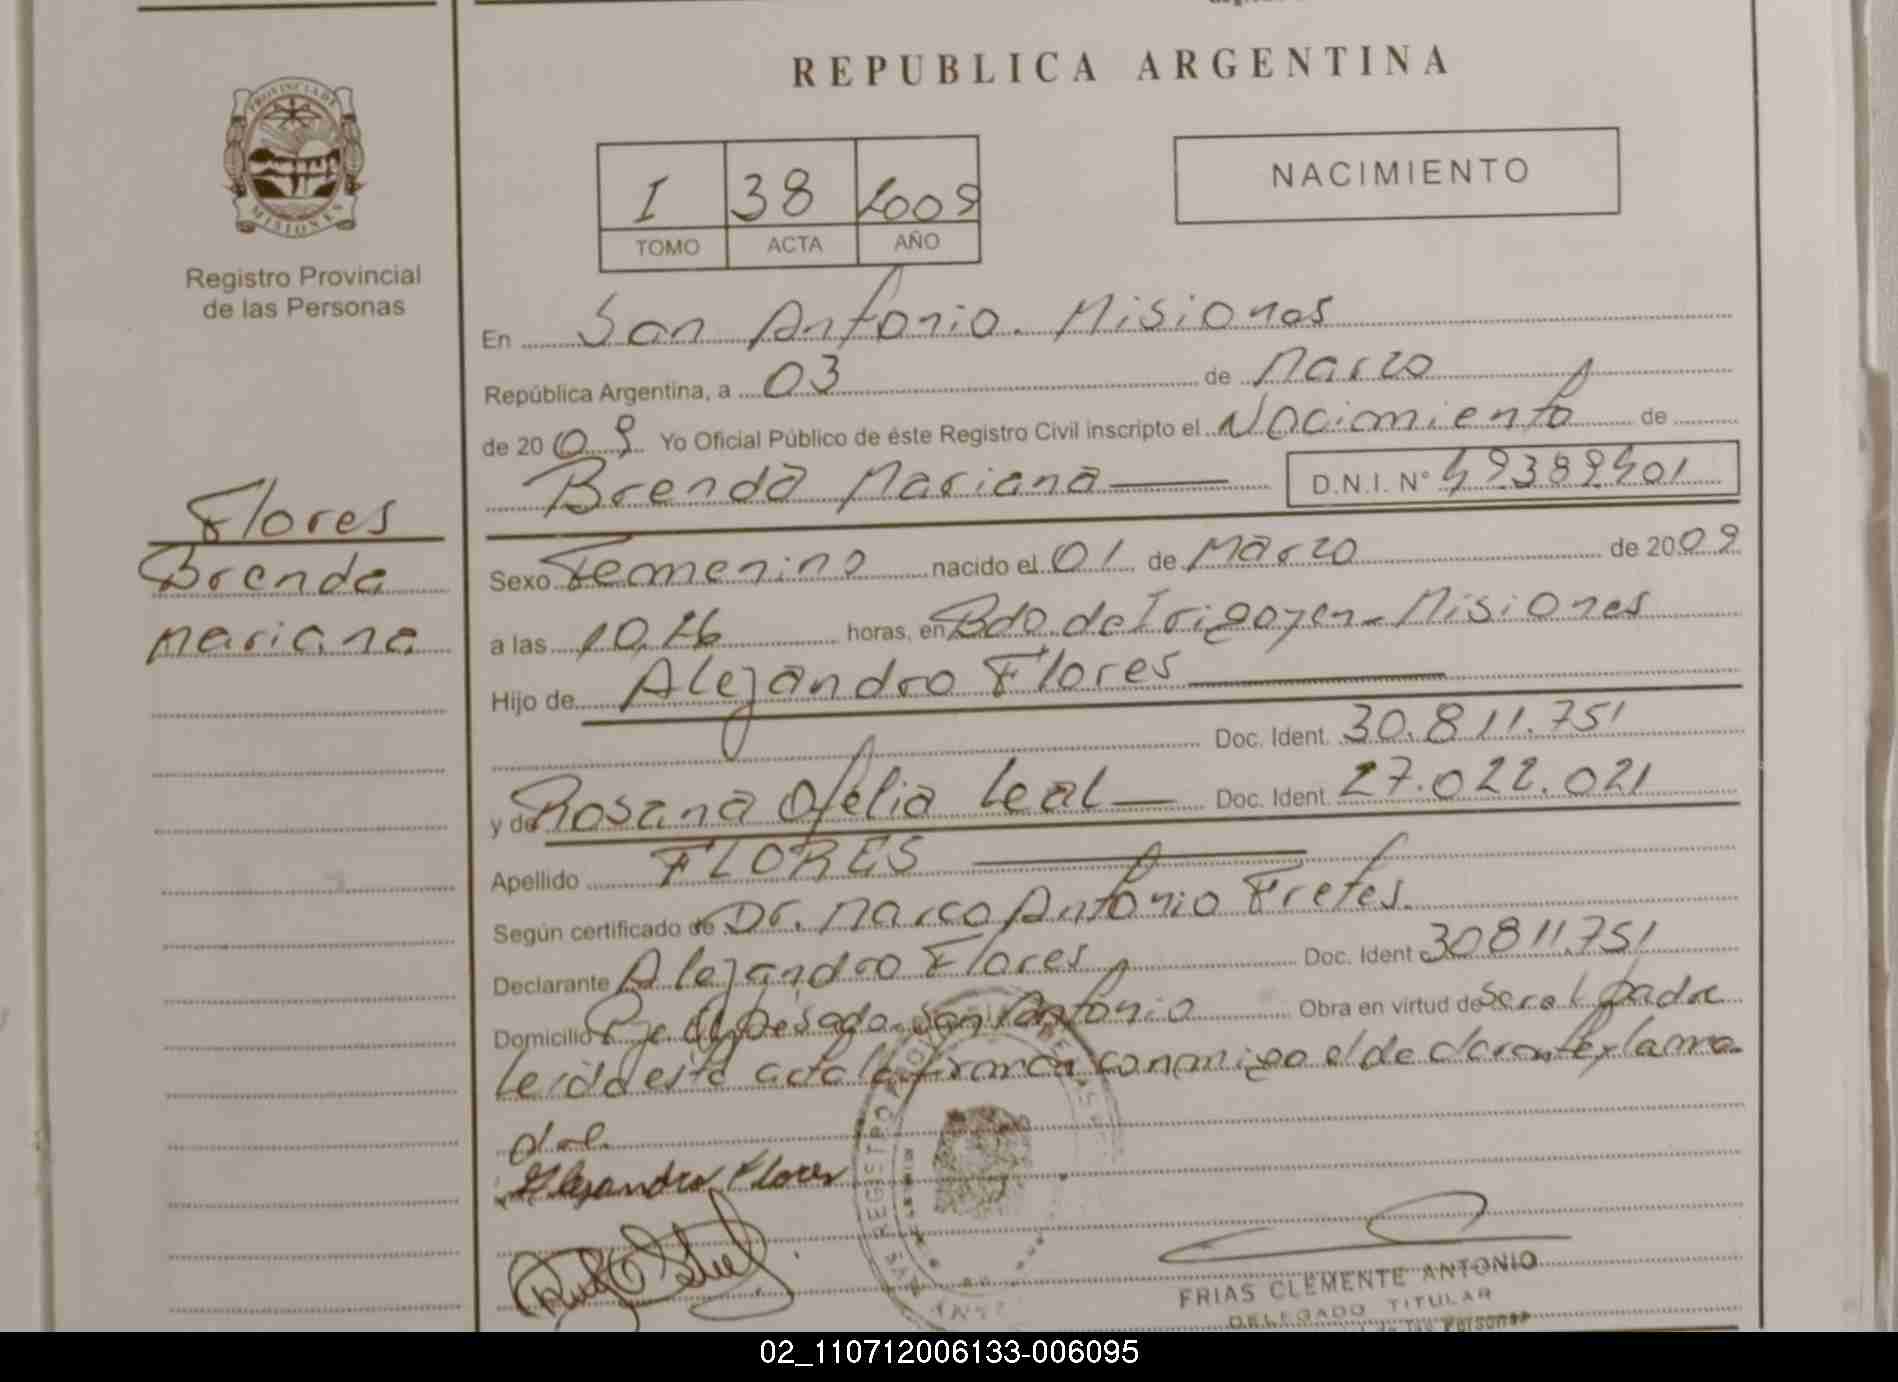 REPUBLICA ARGENTINA
PROVINCIA DE
MISIONES
Registro Provincial
de las Personas
I 38 2009
TOMO ACTA AÑO
NACIMIENTO
En San Antonio. Misiones
República Argentina, a 03 de Marzo
de 2009 Yo Oficial Público de éste Registro Civil inscripto el Nacimiento de
Brenda Mariana D.N.I. N° 49389401
Flores
Brenda
mariana
Sexo Femenino nacido el 01 de Marzo de 2009
a las 10.16 horas, en Bdo de Irigoyen - Misiones
Hijo de Alejandro Flores
Doc. Ident. 30.811.751
y de Rosana Ofelia Leal Doc. Ident. 27.022.021
Apellido FLORES
Según certificado de Dr. Marco Antonio Fretes.
Declarante Alejandro Flores Doc. Ident 30811.751
Domicilio San Antonio Obra en virtud de ser el padre
Leida esta acta la firman conmigo el declarante y la ma
dre.
Alejandro Flores
FRIAS CLEMENTE ANTONIO
DELEGADO TITULAR
de las Personas
02_110712006133-006095